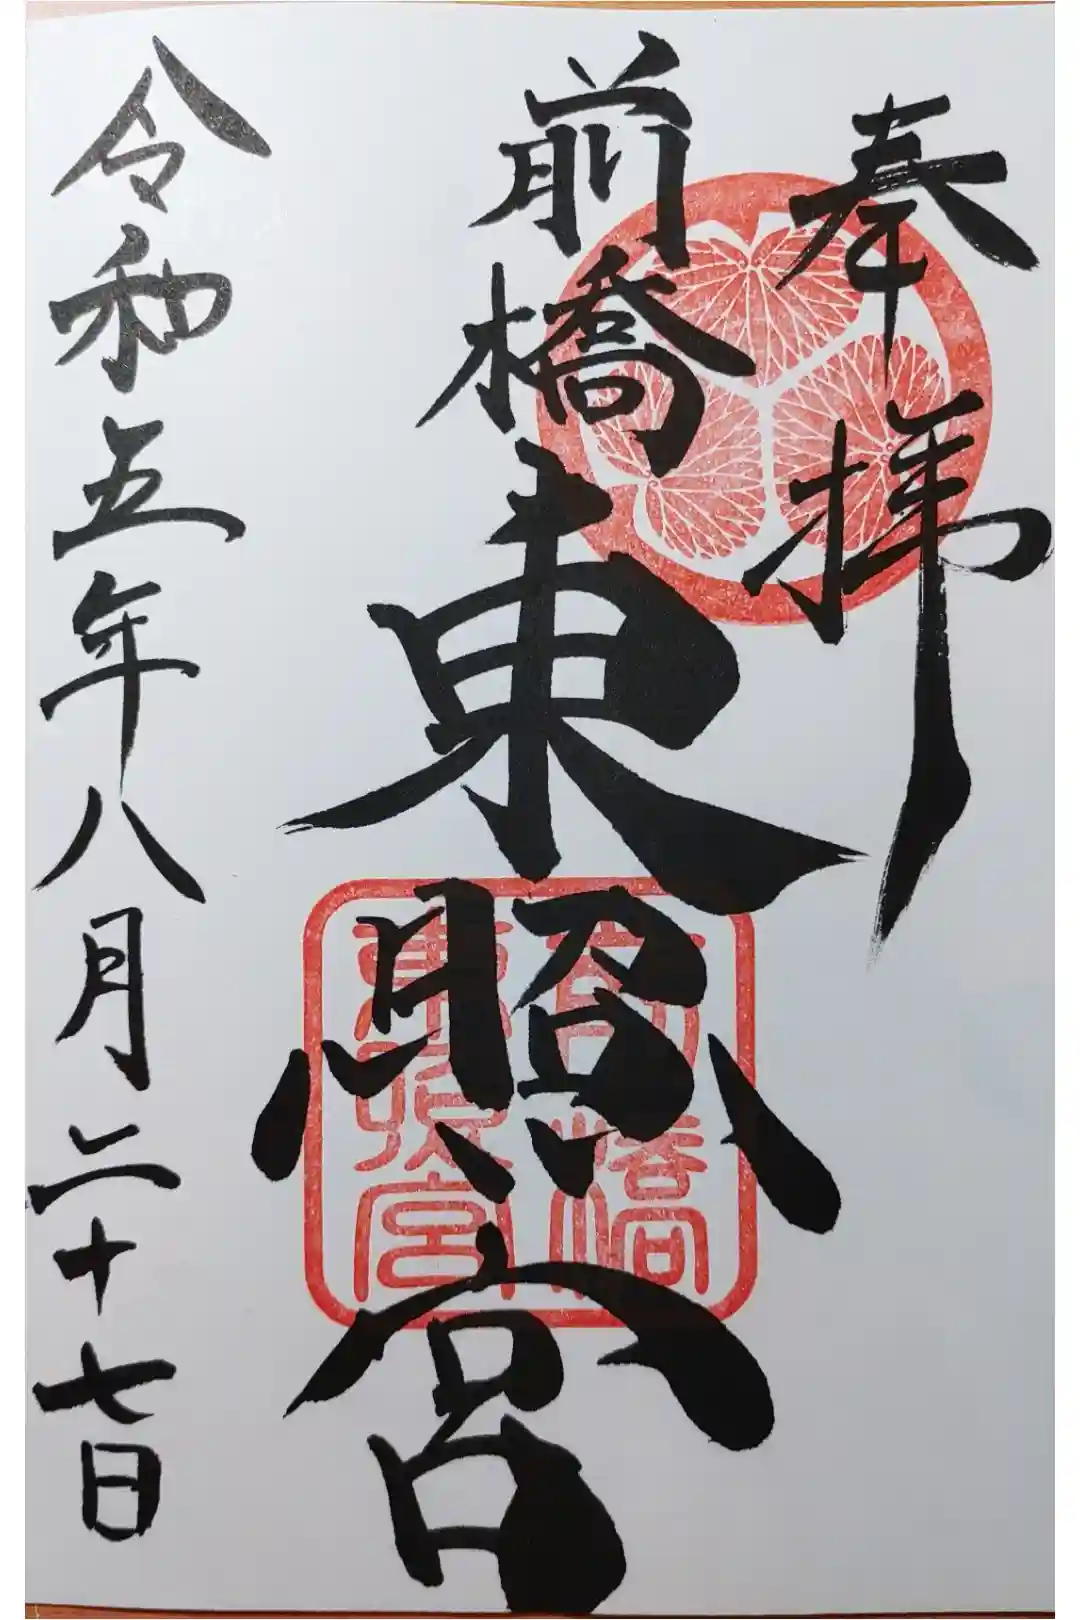 奉拝
前橋東照宮
前橋
東照宮
令和五年八月二十七日